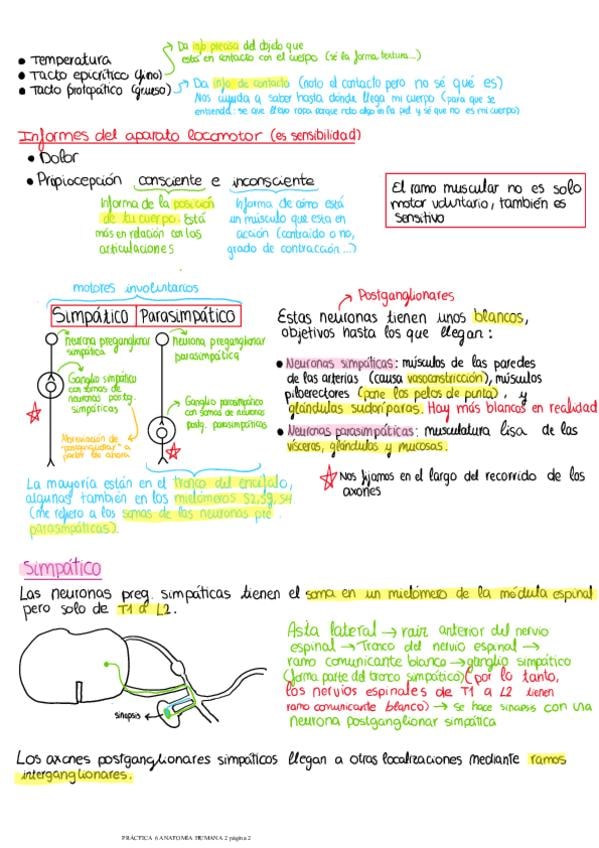 Da info precisa del objeto que
está en contacto con el cuerpo (sé la forma, textura...)
• Temperatura
• Tacto epicrítico (fino)
• Tacto protopático (grueso)
Da info de contacto (noto el contacto pero no sé qué es)
Nos ayuda a saber hasta dónde llega mi cuerpo (para que se
entienda: se que llevo ropa porque noto algo en la piel y sé que no es mi cuerpo)
Informes del aparato locomotor (es sensibilidad)
• Dolor
• Propiocepción consciente e inconsciente
Informa de la posición
de tu cuerpo. Está
más en relación con las
articulaciones
Informa de cómo está
un músculo que esta en
acción (contraído o no,
grado de contracción...)
El ramo muscular no es solo
motor voluntario, también es
sensitivo
motores involuntarios
Simpático | Parasimpático
neurona preganglionar
simpática
Ganglio simpático
con somas de
neuronas postg.
simpáticas
Abreviación de
"postganglionar" a
partir de ahora
Neurona preganglionar
parasimpática
Ganglio parasimpático
con somas de neuronas
postg. parasimpáticas
La mayoría están en el tronco del encéfalo,
algunas también en los mielómeros S2, S3, S4
(me refiero a los somas de las neuronas pre
parasimpáticas).
Postganglionares
Estas neuronas tienen unos blancos,
objetivos hasta los que llegan:
• Neuronas simpáticas: músculos de las paredes
de las arterias (causa vasoconstricción), músculos
piloerectores (pone los pelos de punta), y
glándulas sudoríparas. Hay más blancos en realidad
• Neuronas parasimpáticas: musculatura lisa de las
vísceras, glándulas y mucosas.
Nos fijamos en el largo del recorrido de los
axones
Simpático
Las neuronas preg. simpáticas tienen el soma en un mielómero de la médula espinal
pero solo de T1 a L2.
sinapsis
Asta lateral → raíz anterior del nervio
espinal → Tronco del nervio espinal →
ramo comunicante blanco → ganglio simpático
(forma parte del tronco simpático) (por lo tanto,
los nervios espinales de T1 a L2 tienen
ramo comunicante blanco) → se hace sinapsis con una
neurona postganglionar simpática
Los axones postganglionares simpáticos llegan a otras localizaciones mediante ramos
interganglionares.
PRÁCTICA 6 ANATOMÍA HUMANA 2 página 2